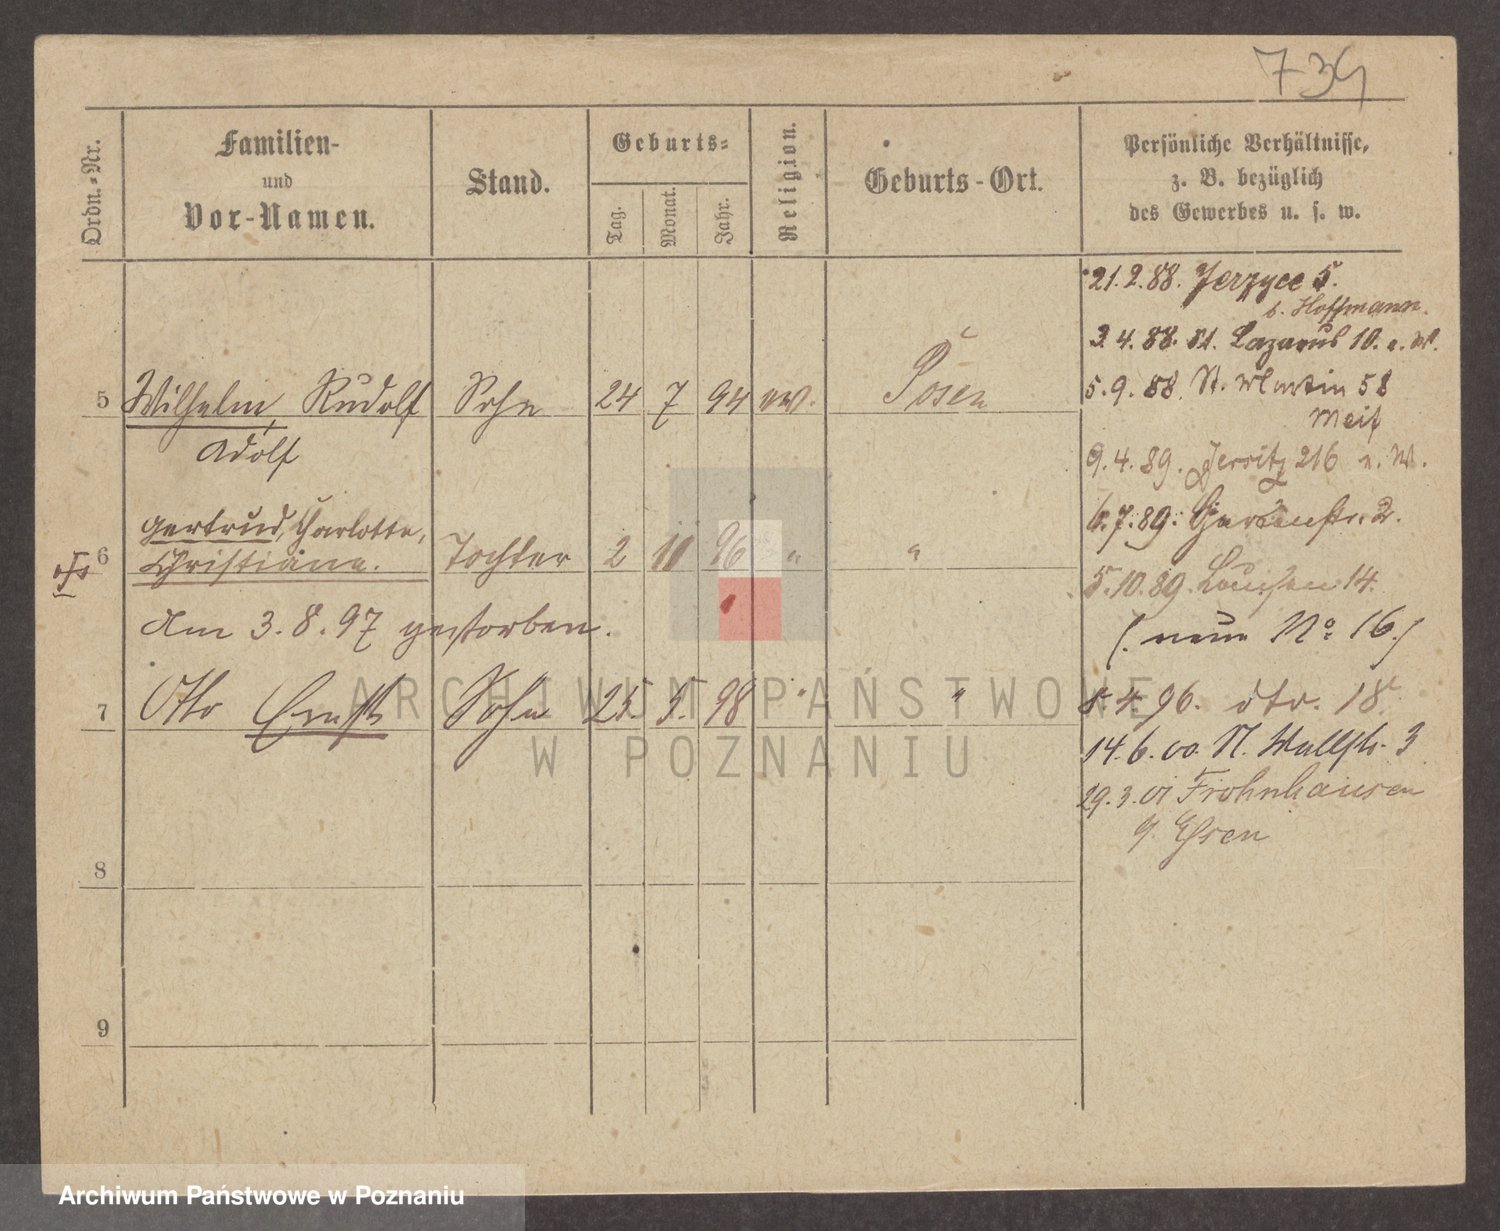 739
Ordn.-Nr.
Familien-
und
Vor-Namen.
Stand.
Geburts-
Tag.
Monat.
Jahr.
Religion.
Geburts-Ort.
Persönliche Verhältnisse,
z. B. bezüglich
des Gewerbes u. s. w.
21.2.88. Jerzyce 5.
b. Hoffmann.
3.4.88. St. Lazarus 10. n. W.
5 Wilhelm, Rudolf Sohn 24 7 94 ev. Posen
Adolf
5.9.88. St. Martin 58
9.4.89. Jersitz 216 n. W.
Gertrud, Charlotte,
6 Christiane. Tochter 2 11 96 " "
6.7.89. Gartenstr. 2.
5.10.89. Louisen 14.
Am 3.8.97 gestorben.
(neue No 16.)
7 Otto Ernst Sohn 25. 5. 98 " "
8.4.96. dto. 18.
14.6.00. N. Wallstr. 3
29.3.01 Frohnhausen
8
9
ARCHIWUM PAŃSTWOWE
W POZNANIU
Archiwum Państwowe w Poznaniu